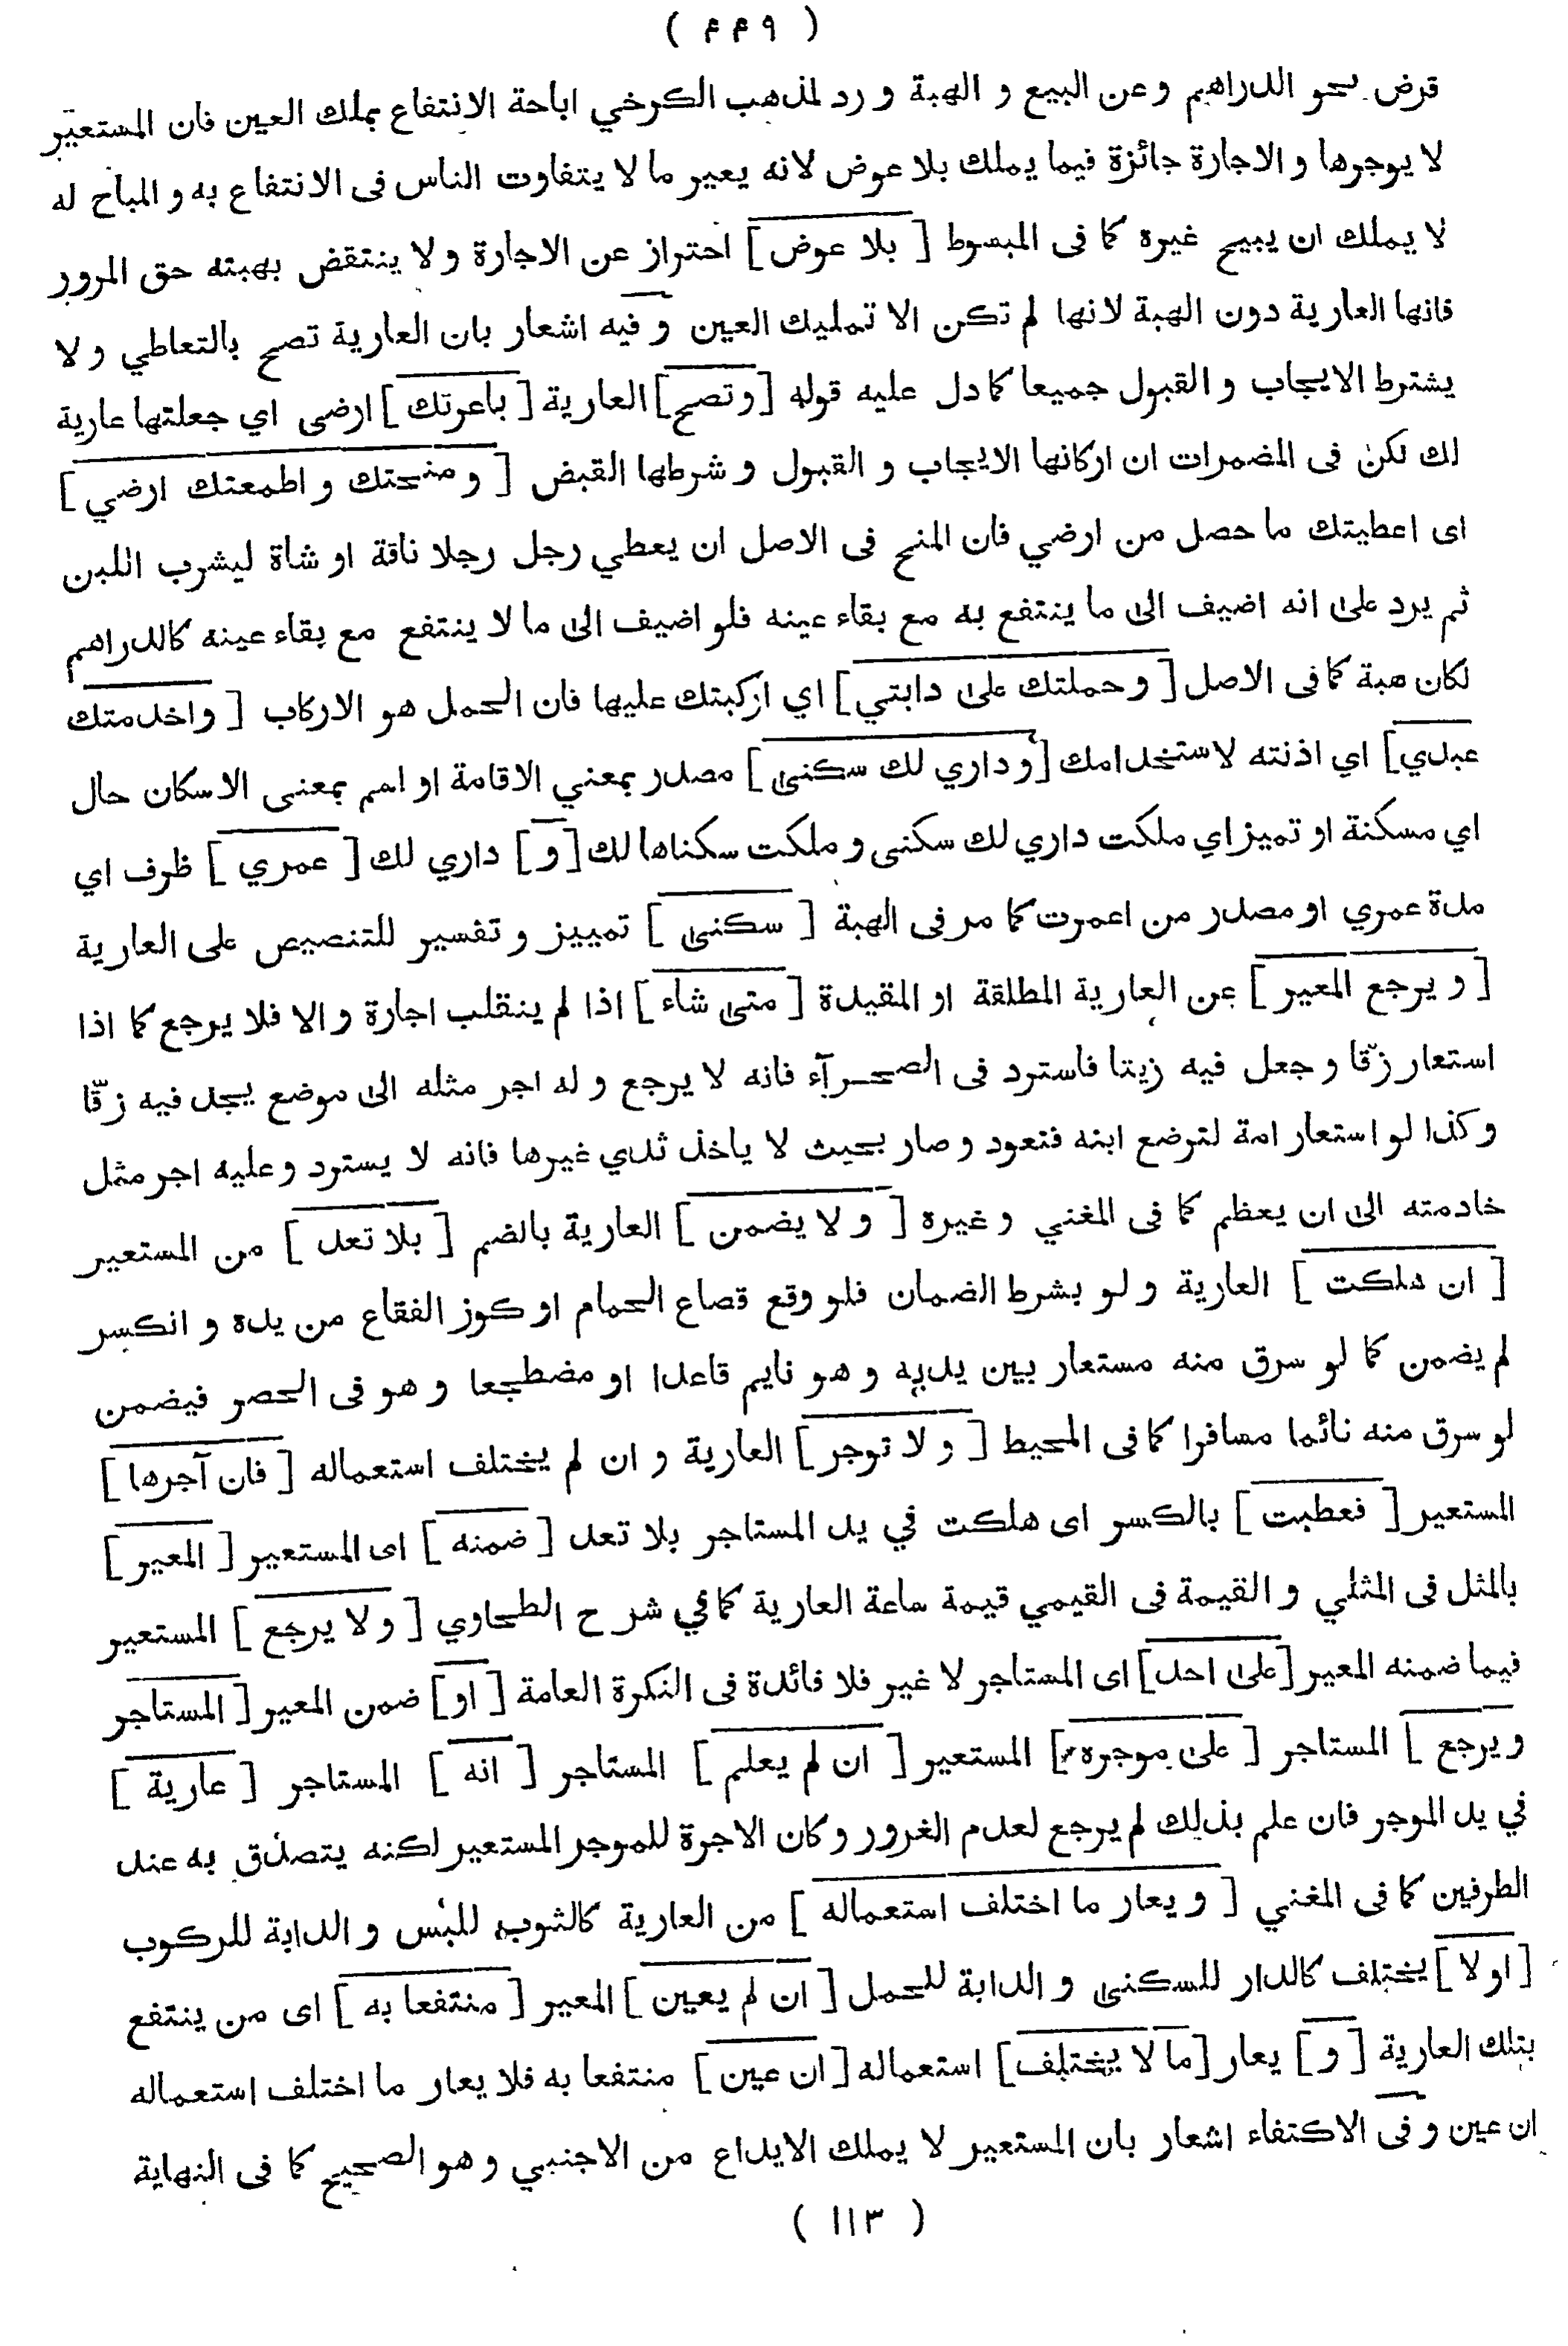 ( ٤٤٩ )
قرض نحو الدراهم وعن البيع و الهبة و رد لمذهب الكرخي اباحة الانتفاع بملك العين فان المستعير
لا يوجرها و الاجارة جائزة فيما يملك بلا عوض لانه يعير ما لا يتفاوت الناس فى الانتفاع به و المباح له
لا يملك ان يبيح غيره كما فى المبسوط [ بلا عوض ] احتراز عن الاجارة و لا ينتقض بهبته حق المرور
فانها العارية دون الهبة لانها لم تكن الا تمليك العين و فيه اشعار بان العارية تصح بالتعاطي و لا
يشترط الايجاب و القبول جميعا كما دل عليه قوله [ وتصح ] العارية [ باعرتك ] ارضى اي جعلتها عارية
لك لكن فى المضمرات ان اركانها الايجاب و القبول و شرطها القبض [ و منحتك و اطعمتك ارضي ]
اى اعطيتك ما حصل من ارضي فان المنح فى الاصل ان يعطي رجل رجلا ناقة او شاة ليشرب اللبن
ثم يرد على انه اضيف الى ما ينتفع به مع بقاء عينه فلو اضيف الى ما لا ينتفع مع بقاء عينه كالدراهم
لكان هبة كما فى الاصل [ و حملتك على دابتي ] اي اركبتك عليها فان الحمل هو الاركاب [ واخدمتك
عبدي ] اي اذنته لاستخدامك [ و داري لك سكنى ] مصدر بمعني الاقامة او اسم بمعنى الاسكان حال
اي مسكنة او تميز اي ملكت داري لك سكنى و ملكت سكناها لك [ و ] داري لك [ عمري ] ظرف اي
مدة عمري او مصدر من اعمرت كما مر فى الهبة [ سكنى ] تمييز و تفسير للتنصيص على العارية
[ و يرجع المعير ] عن العارية المطلقة او المقيدة [ متى شاء ] اذا لم ينقلب اجارة و الا فلا يرجع كما اذا
استعار زقا و جعل فيه زيتا فاسترد فى الصحرآء فانه لا يرجع و له اجر مثله الى موضع يجد فيه زقّا
و كذا لو استعار امة لترضع ابنه فتعود و صار بحيث لا ياخذ ثدي غيرها فانه لا يسترد و عليه اجر مثل
خادمته الى ان يعظم كما فى المغني و غيره [ و لا يضمن ] العارية بالضم [ بلا تعد ] من المستعير
[ ان هلكت ] العارية و لو بشرط الضمان فلو وقع قصاع الحمام او كوز الفقاع من يده و انكسر
لم يضمن كما لو سرق منه مستعار بين يديه و هو نايم قاعدا او مضطجعا و هو فى الحصر فيضمن
لو سرق منه نائما مسافرا كما فى المحيط [ و لا توجر ] العارية و ان لم يختلف استعماله [ فان آجرها ]
المستعير [ فعطبت ] بالكسر اى هلكت في يد المستاجر بلا تعد [ ضمنه ] اى المستعير [ المعير ]
بالمثل فى المثلي و القيمة فى القيمي قيمة ساعة العارية كما في شرح الطحاوي [ و لا يرجع ] المستعير
فيما ضمنه المعير [ على احد ] اى المستاجر لا غير فلا فائدة فى النكرة العامة [ او ] ضمن المعير [ المستاجر
و يرجع ] المستاجر [ على موجره ] المستعير [ ان لم يعلم ] المستاجر [ انه ] المستاجر [ عارية ]
في يد الموجر فان علم بذلك لم يرجع لعدم الغرور و كان الاجرة للموجر المستعير لكنه يتصدق به عند
الطرفين كما فى المغني [ و يعار ما اختلف استعماله ] من العارية كالثوب للبس و الدابة للركوب
[ او لا ] يختلف كالدار للسكنى و الدابة للحمل [ ان لم يعين ] المعير [ منتفعا به ] اى من ينتفع
بتلك العارية [ و ] يعار [ ما لا يختلف ] استعماله [ ان عين ] منتفعا به فلا يعار ما اختلف استعماله
ان عين و فى الاكتفاء اشعار بان المستعير لا يملك الايداع من الاجنبي و هو الصحيح كما فى النهاية
( ١١٣ )